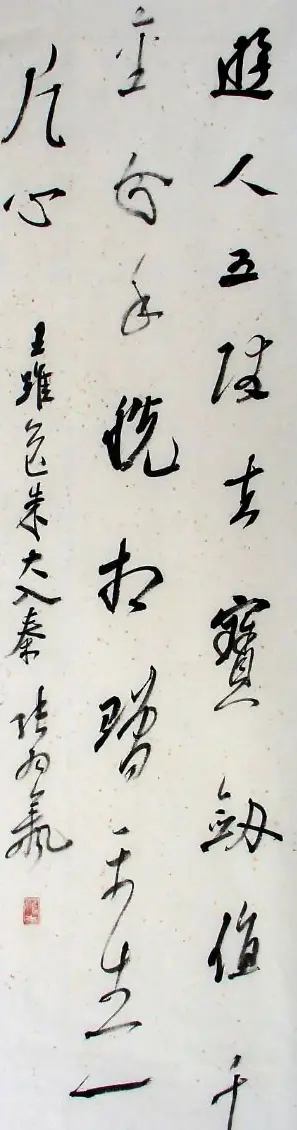 遊人五陵去寶劍值千
金分手脫相贈平生一
片心
王維送朱大入秦 張